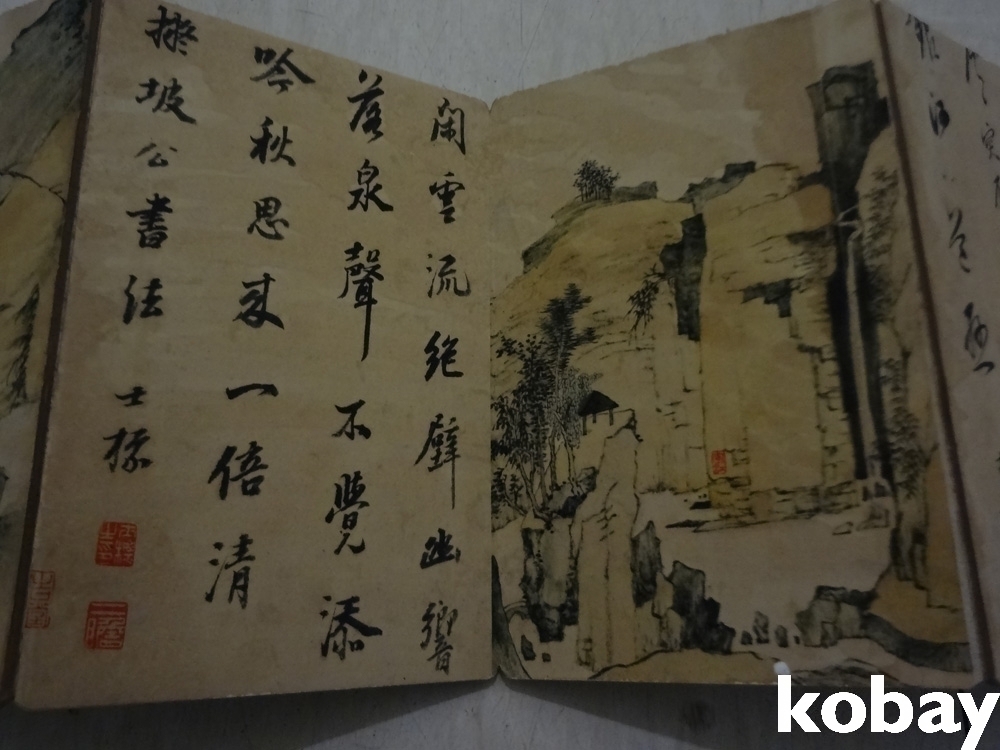 闌雲流絶壁幽響
落泉聲不覺添
吟秋思来一倍清
擬坡公書法 士標
kobay